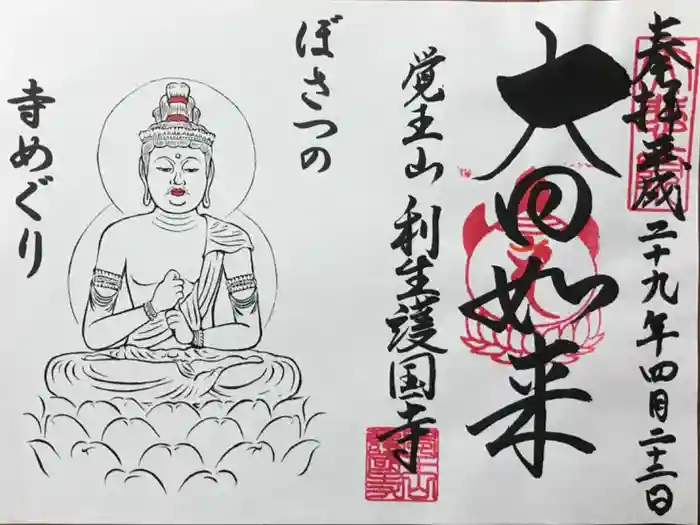 奉拝 平成二十九年四月二十二日
大日如来
覚王山 利生護国寺
ぼさつの
寺めぐり